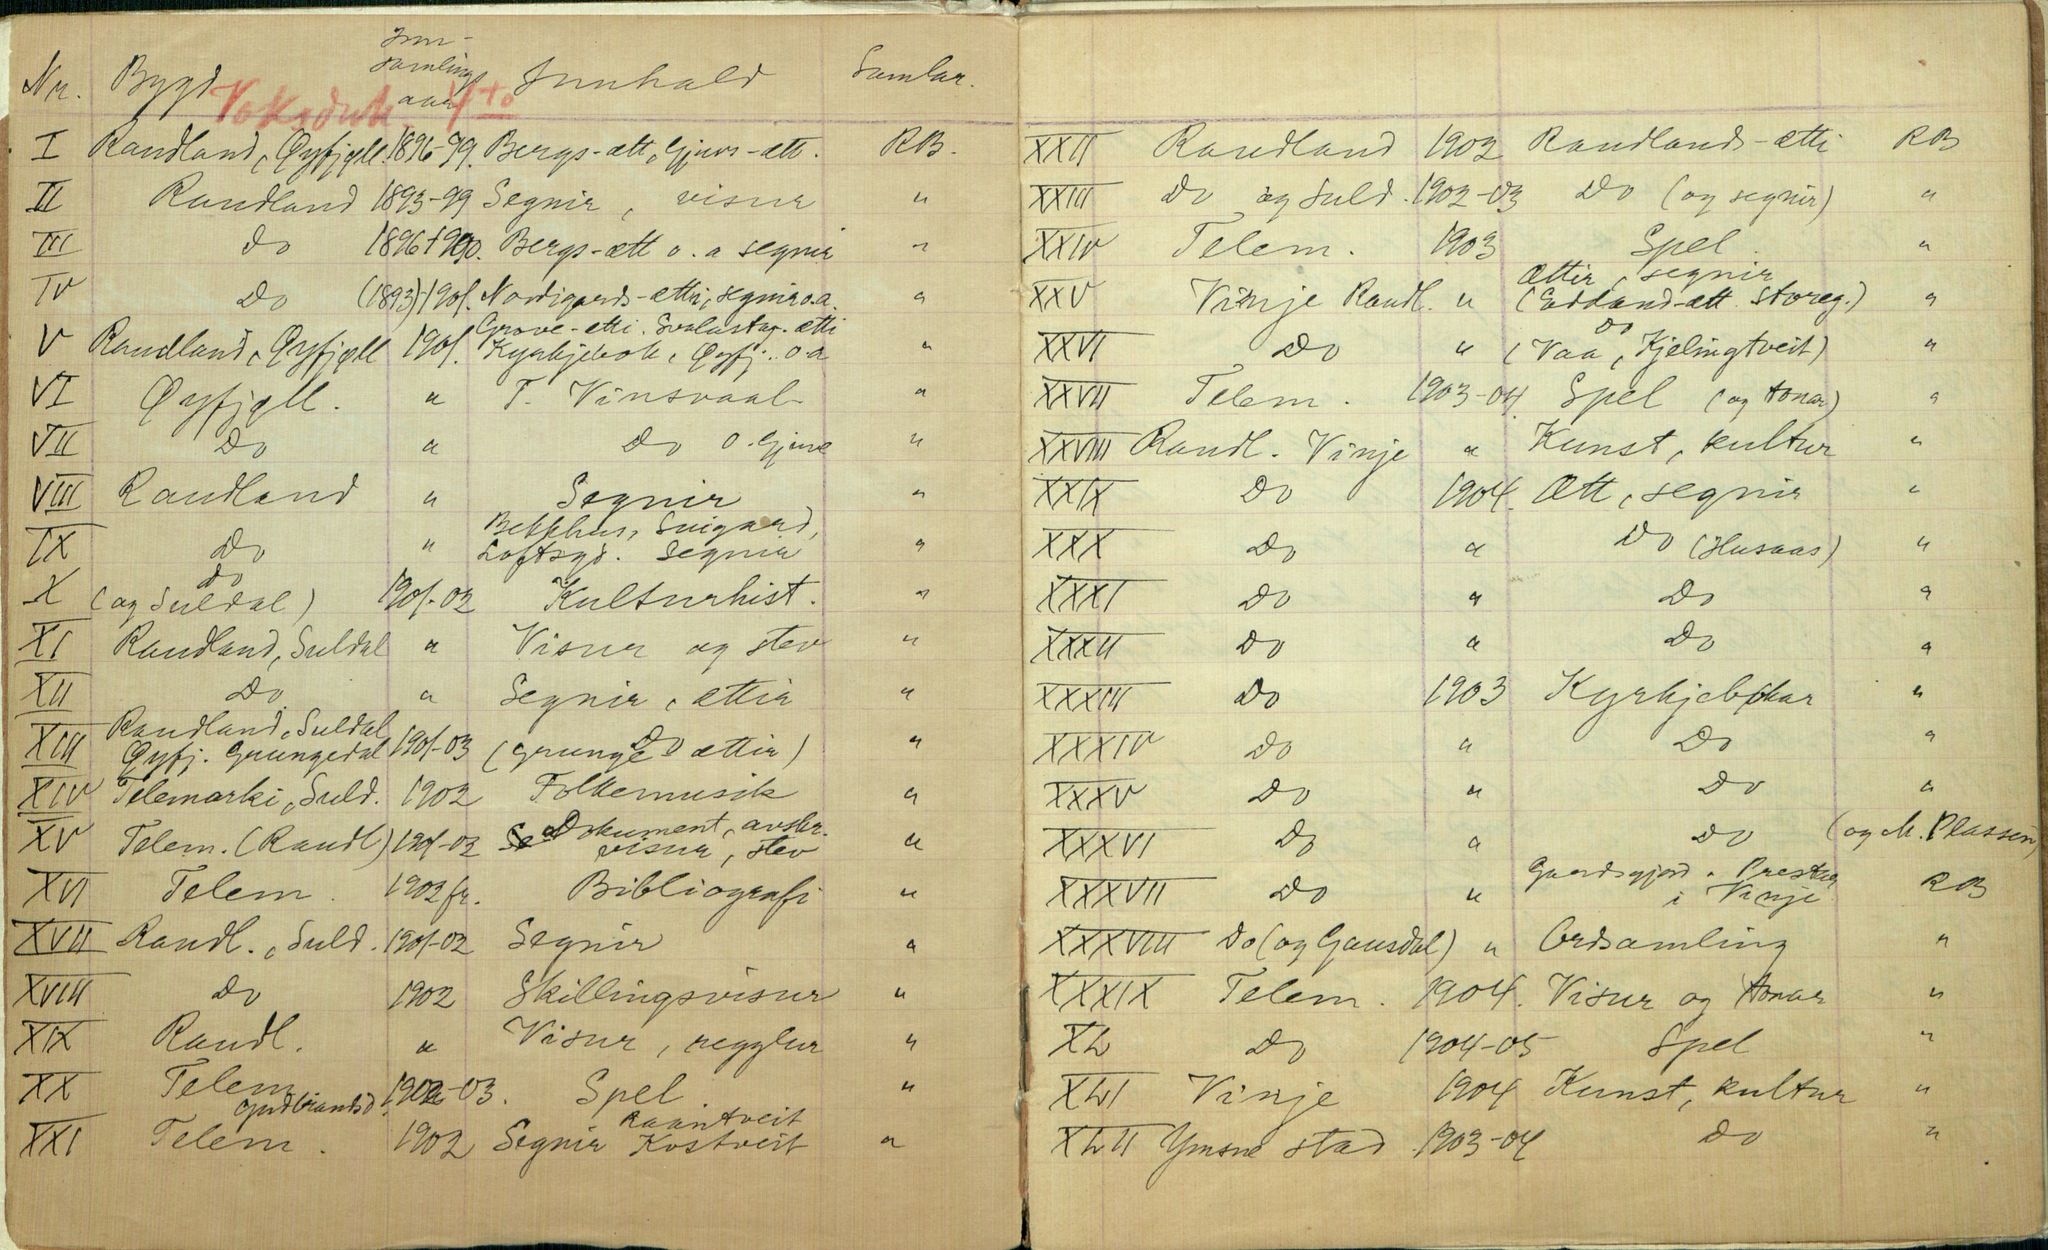 Nr. Bygd Inn-samlings aar Innhald Samlar.
Voksduk 4to
I Raudland, Øyfjell 1896-99. Bergs-ætt, Gjuvs-ætt. RB.
II Raudland 1893-99 Segnir, visur "
III Do 1896+1900. Bergs-ætt o. a segnir "
IV Do (1893)-1901. Nordigards-ætti, segnir o.a. "
V Raudland, Øyfjell 1901. Grove-ætti. Svalastog-ætti
Kyrkjebok, Øyfj. o.a "
VI Øyfjell. " T. Vinsvaal "
VII Do " Do O. Gjuve "
VIII Raudland " Segnir "
IX Do " Bekkhus, Suigard,
Loftsgd. Segnir "
X Do
(og Suldal) 1901-02 Kulturhist. "
XI Raudland, Suldal " Visur og stev "
XII Do " Segnir, ættir "
XIII Raudland, Suldal
Øyfj. Grungedal 1901-03 Do
(Grunge ættir) "
XIV Telemarki, Suld. 1902 Folkemusik "
XV Telem. (Raudl) 1901-02 Dokument, avskr.
visur, stev "
XVI Telem. 1902 fr. Bibliografi "
XVII Raudl., Suld. 1901-02 Segnir "
XVIII Do 1902 Skillingsvisur "
XIX Raudl. " Visur, regglur "
XX Telem
Gudbrandsd. 1902-03. Spel. "
XXI Telem. 1902 Segnir Raantveit
Kostveit "
XXII Raudland 1902 Raudlands-ætti RB
XXIII Do og Suld. 1902-03 Do (og segnir) "
XXIV Telem. 1903 Spel. "
XXV Vinje Raudl. " Ættir, segnir
(Edland-ætt Storeg.) "
XXVI Do " Do
(Vaa, Kjelingtveit) "
XXVII Telem. 1903-04. Spel (og tonar) "
XXVIII Raudl. Vinje " Kunst, kultur "
XXIX Do 1904. Ætt, segnir "
XXX Do " Do (Husaas) "
XXXI Do " Do "
XXXII Do " Do "
XXXIII Do 1903 Kyrkjebøkar "
XXXIV Do " Do "
XXXV Do " Do "
XXXVI Do " Do (og M. Plassen)
XXXVII Do " Gardsgjød. Prestar
i Vinje RB
XXXVIII Do (og Gausdal) " Ordsamling "
XXXIX Telem. 1904. Visur og tonar "
XL Do 1904-05 Spel "
XLI Vinje 1904 Kunst, kultur "
XLII Ymsne stad 1903-04 Do "